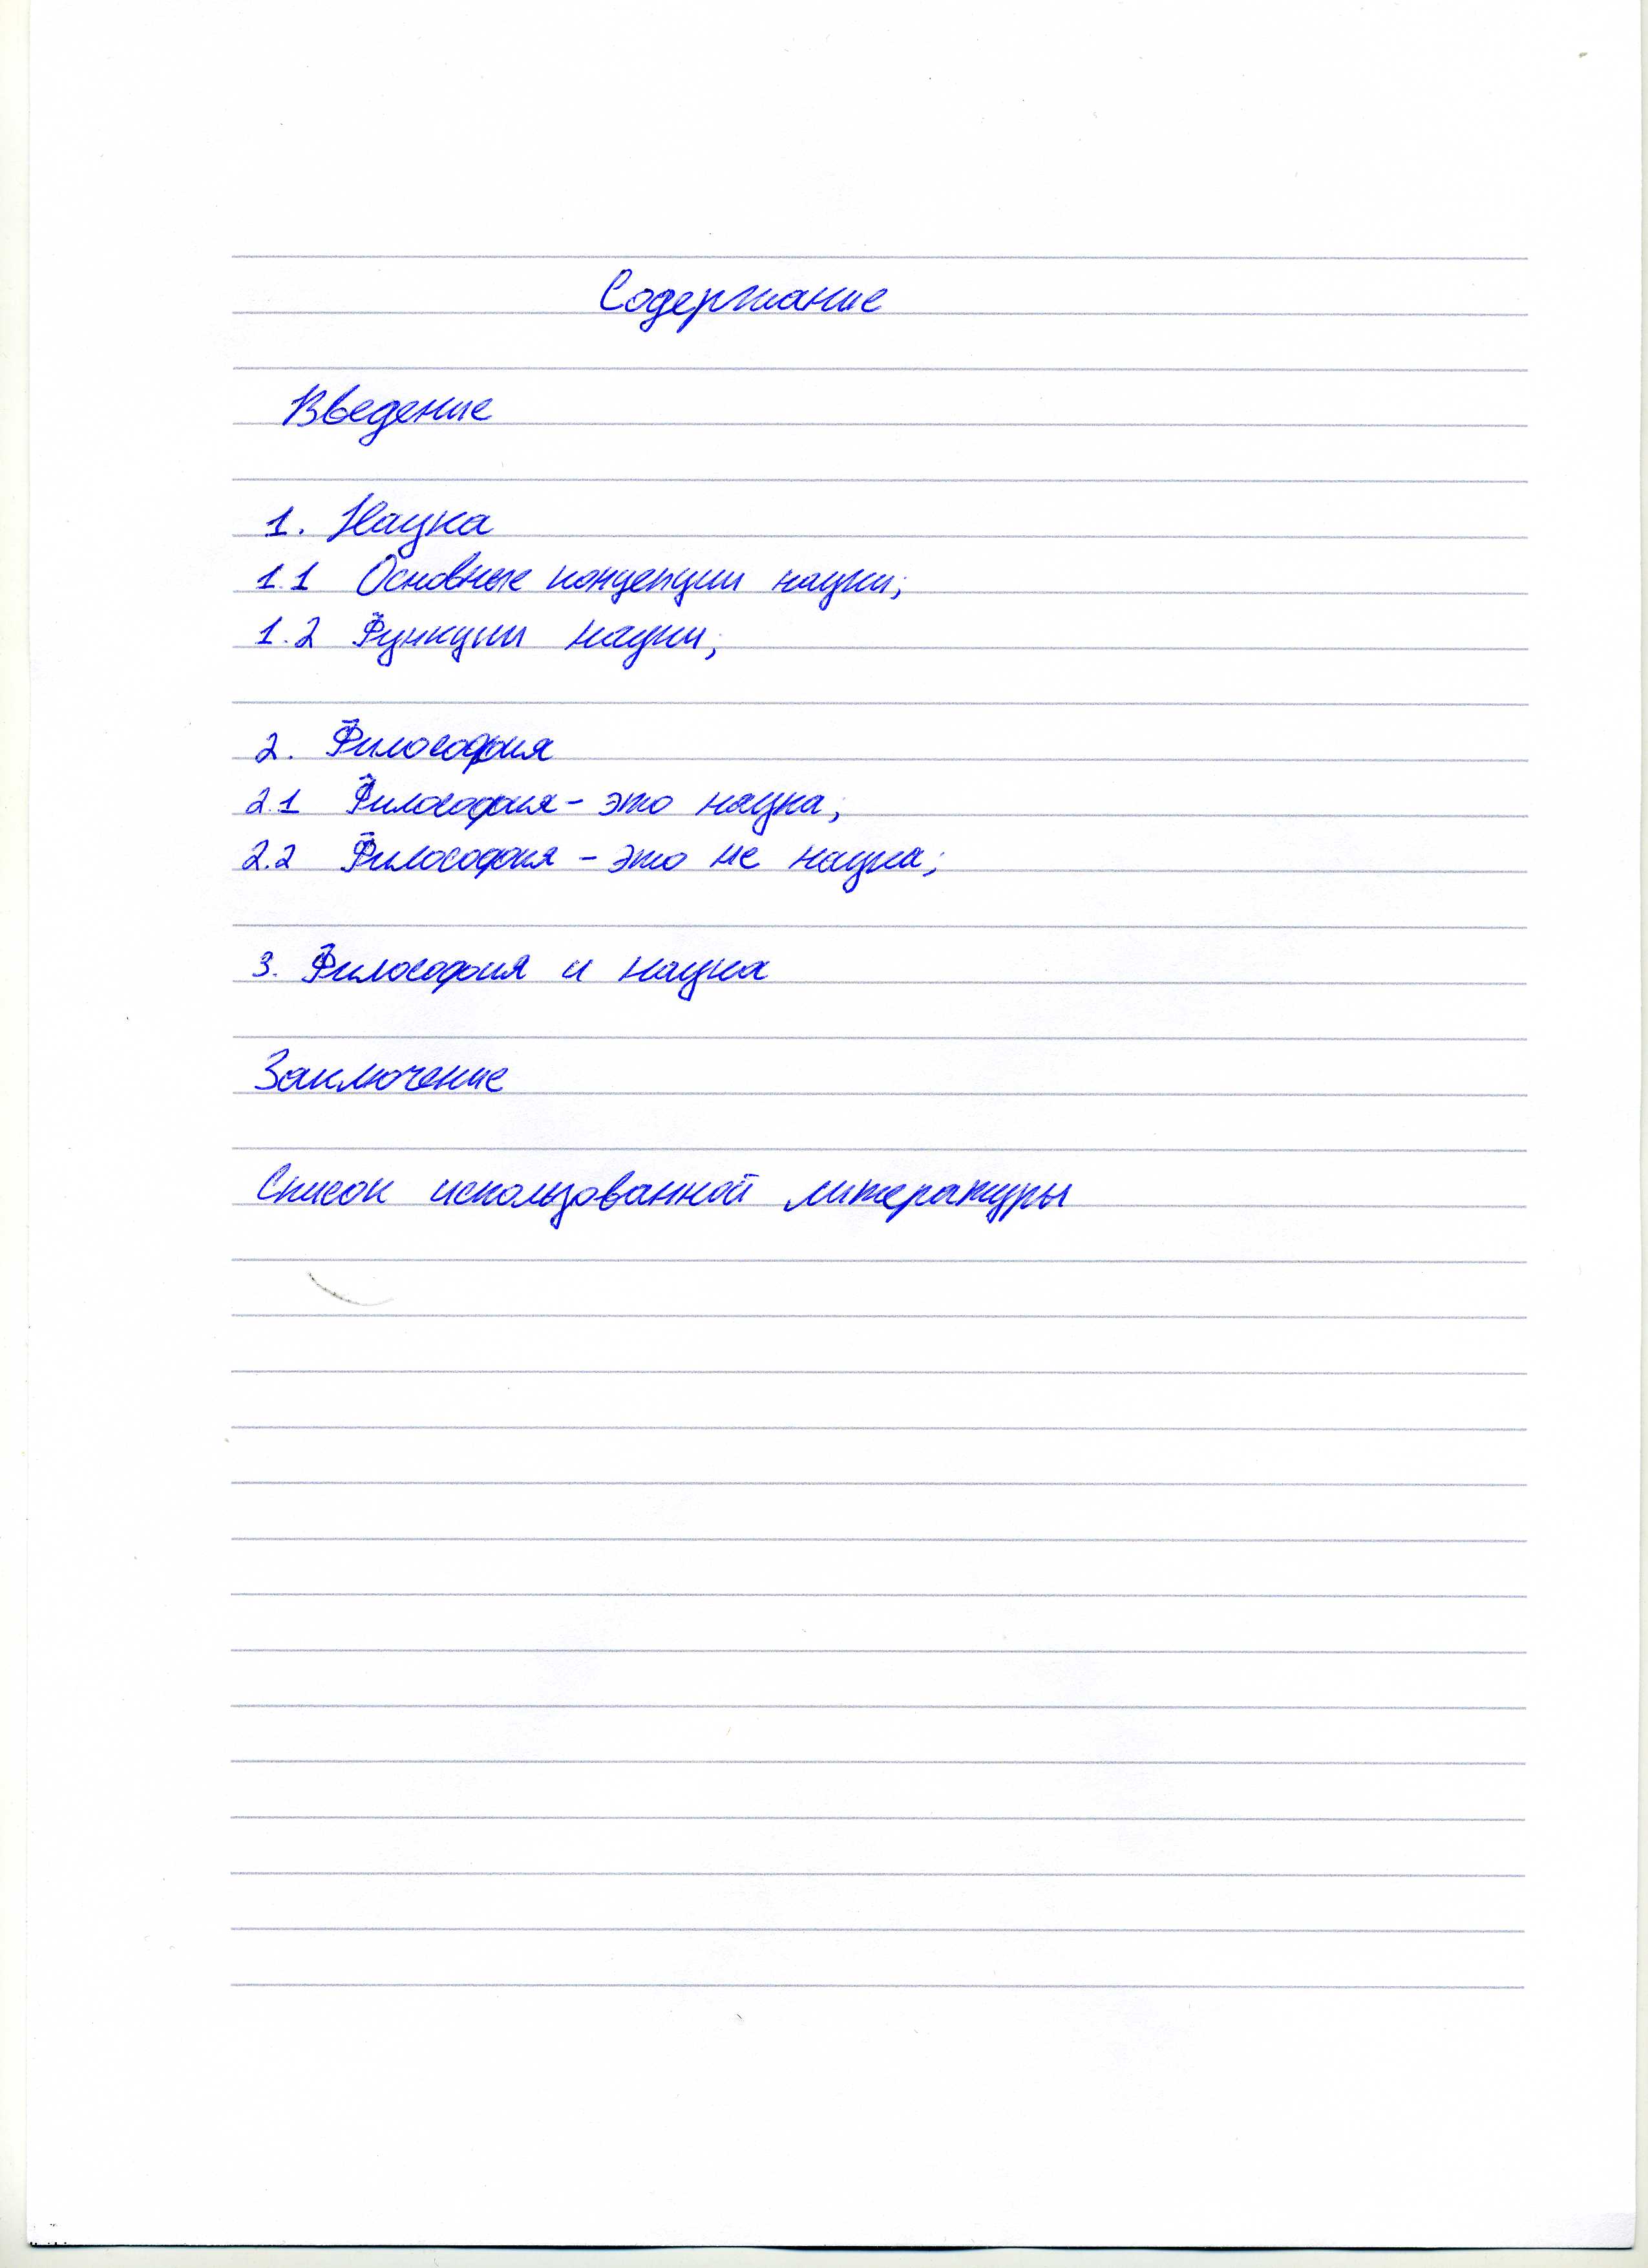 Содержание
Введение
1. Наука
1.1 Основные концепции науки;
1.2 Функции науки;
2. Философия
2.1 Философия - это наука;
2.2 Философия - это не наука;
3. Философия и наука
Заключение
Список использованной литературы